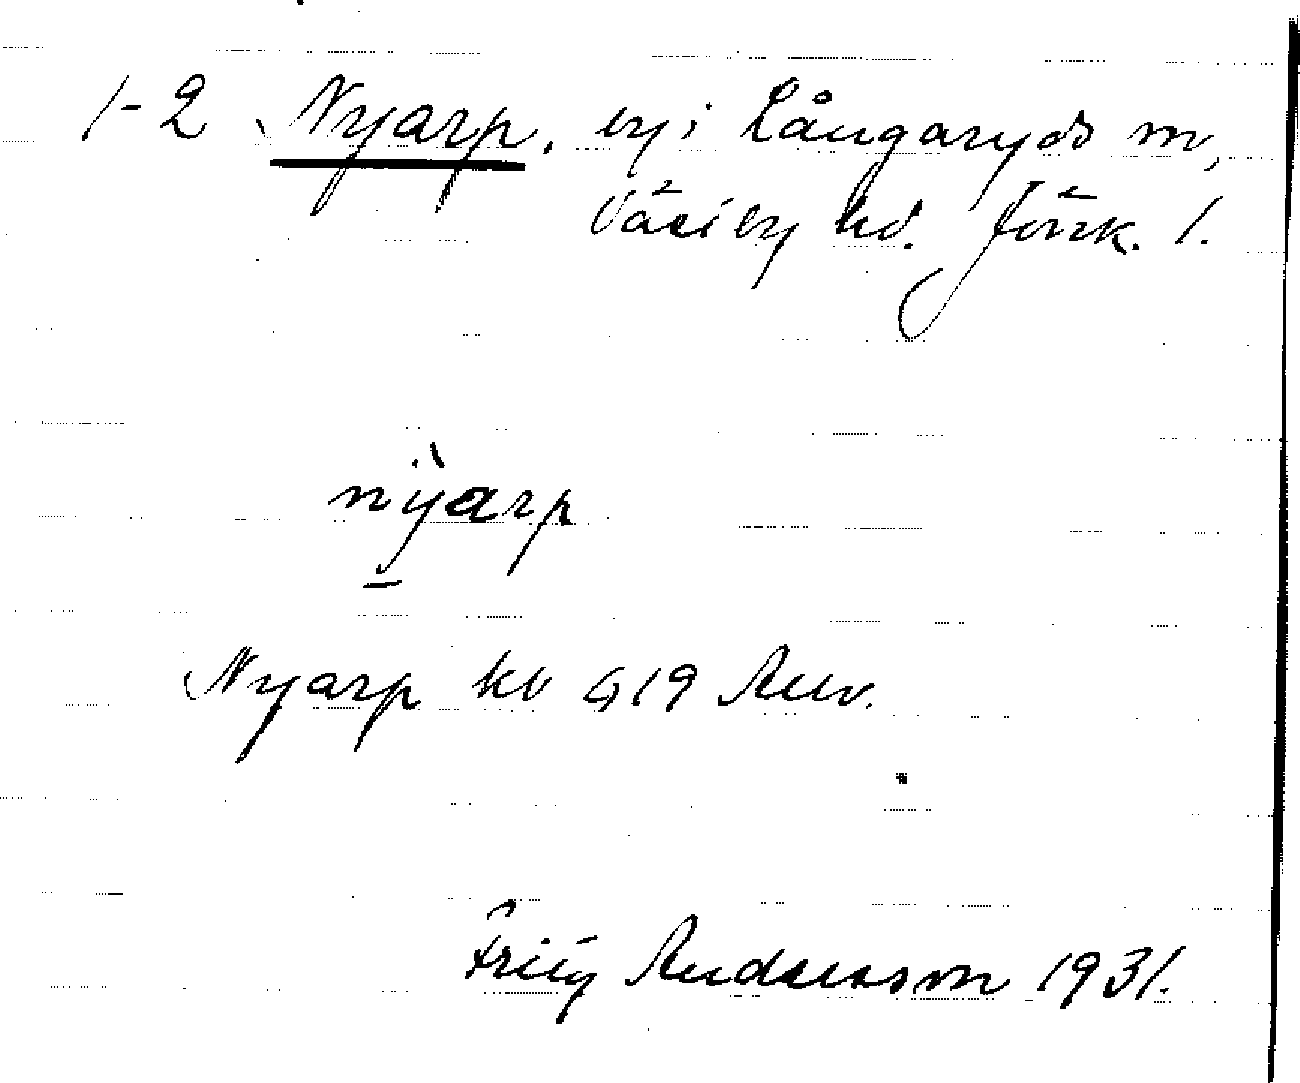 1-2 Nyarp, by i Långaryds sn,
Västbo hd. Jönk. l.
nỳarp
Nyarp kb 419 Anv.
Fritz Andersson 1931.